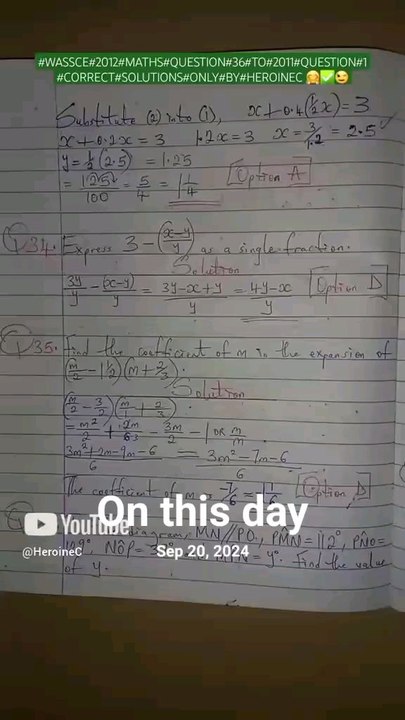 #WASSCE#2012#MATHS#QUESTION#36#TO#2011#QUESTION#1
#CORRECT#SOLUTIONS#ONLY#BY#HEROINEC 🤗✅😉
Substitute (2) into (1), x+0.4(½x)=3
x+0.2x=3 1.2x=3 x=3/1.2=2.5
y=½(2.5) =1.25
=125/100=5/4=1¼ Option A
34. Express 3-(x-y/y) as a single fraction.
Solution
3y/y-(x-y)/y=3y-x+y/y=4y-x/y Option D
35. find the coefficient of m in the expansion of
(m/2-1½)(m+⅔).
Solution
(m/2-3/2)(m/1+2/3)
=m²/2+2m/6-3m/2-1 OR
3m²+2m-9m-6/6=3m²-7m-6/6
The coefficient of m = -7/6 = 1/6 Option D
On this day
YouTube
@HeroineC
Sep 20, 2024
diagram, MN//PO, PMN=112°, PNO=
109°, NOP=3 =y°. Find the value
of y.